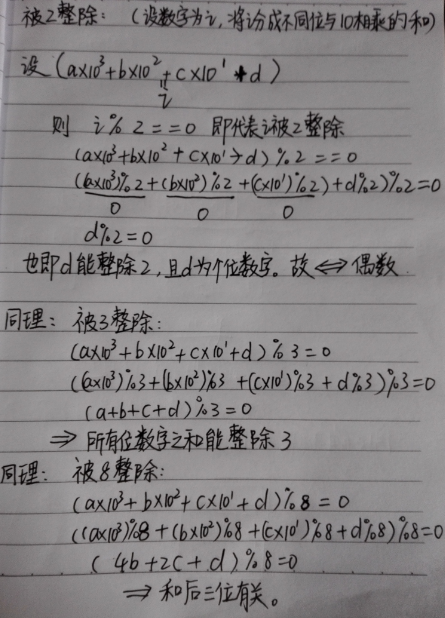 被2整除：（设数字为i，将i分成不同位与10相乘的和）
设（a×10³+b×10²+c×10¹+d）
i
则 i%2==0 即代表i被2整除
(a×10³+b×10²+c×10¹+d)%2==0
((a×10³)%2+(b×10²)%2+(c×10¹)%2)+d%2)%2=0
0 0 0
d%2=0
也即d能整除2，且d为个位数字。故⇔偶数.
同理：被3整除：
(a×10³+b×10²+c×10¹+d)%3=0
((a×10³)%3+(b×10²)%3+(c×10¹)%3+d%3)%3=0
(a+b+c+d)%3=0
⇒ 所有位数字之和能整除3
同理：被8整除：
(a×10³+b×10²+c×10¹+d)%8=0
((a×10³)%8+(b×10²)%8+(c×10¹)%8+d%8)%8=0
(4b+2c+d)%8=0
⇒ 和后三位有关。